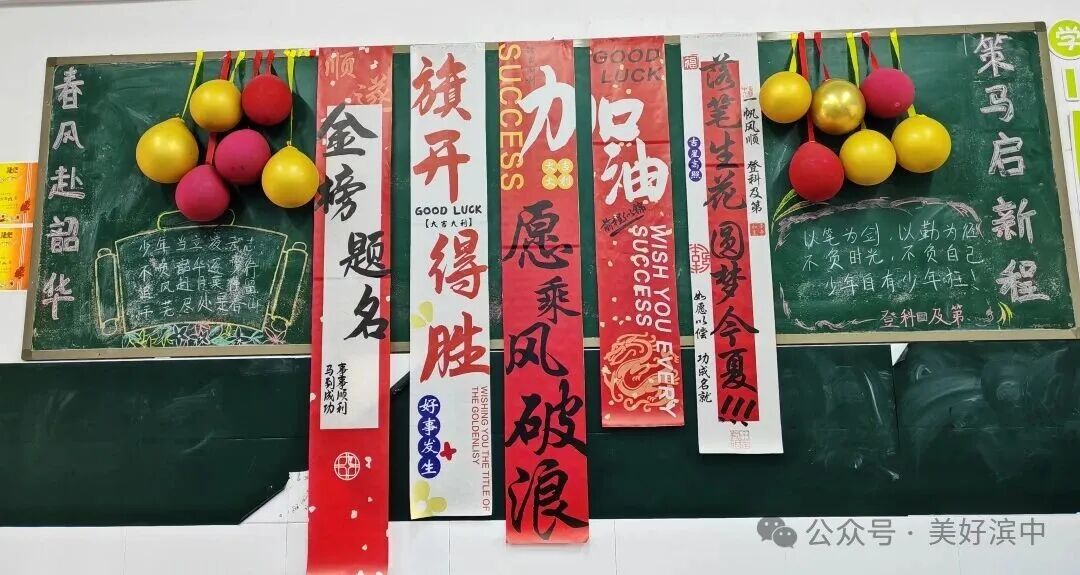 春风赴韶华
顺
溢
金榜题名
事事顺利
马到成功
旗开得胜
GOOD LUCK
【大吉大利】
好事发生
WISHING YOU THE TITLE OF
THE GOLDENLISY
SUCCESS
加
大吉
大利
愿乘风破浪
GOOD
LUCK
加油
前程似锦
WISH YOU EVERY
SUCCESS
福
落笔生花
圆梦今夏!!!
吉星高照
一帆风顺 登科及第
如愿以偿 功成名就
以笔为剑,以勤为
不负时光,不负自己
少年自有少年狂!
登科及第
策马启新程
学
公众号·美好滨中